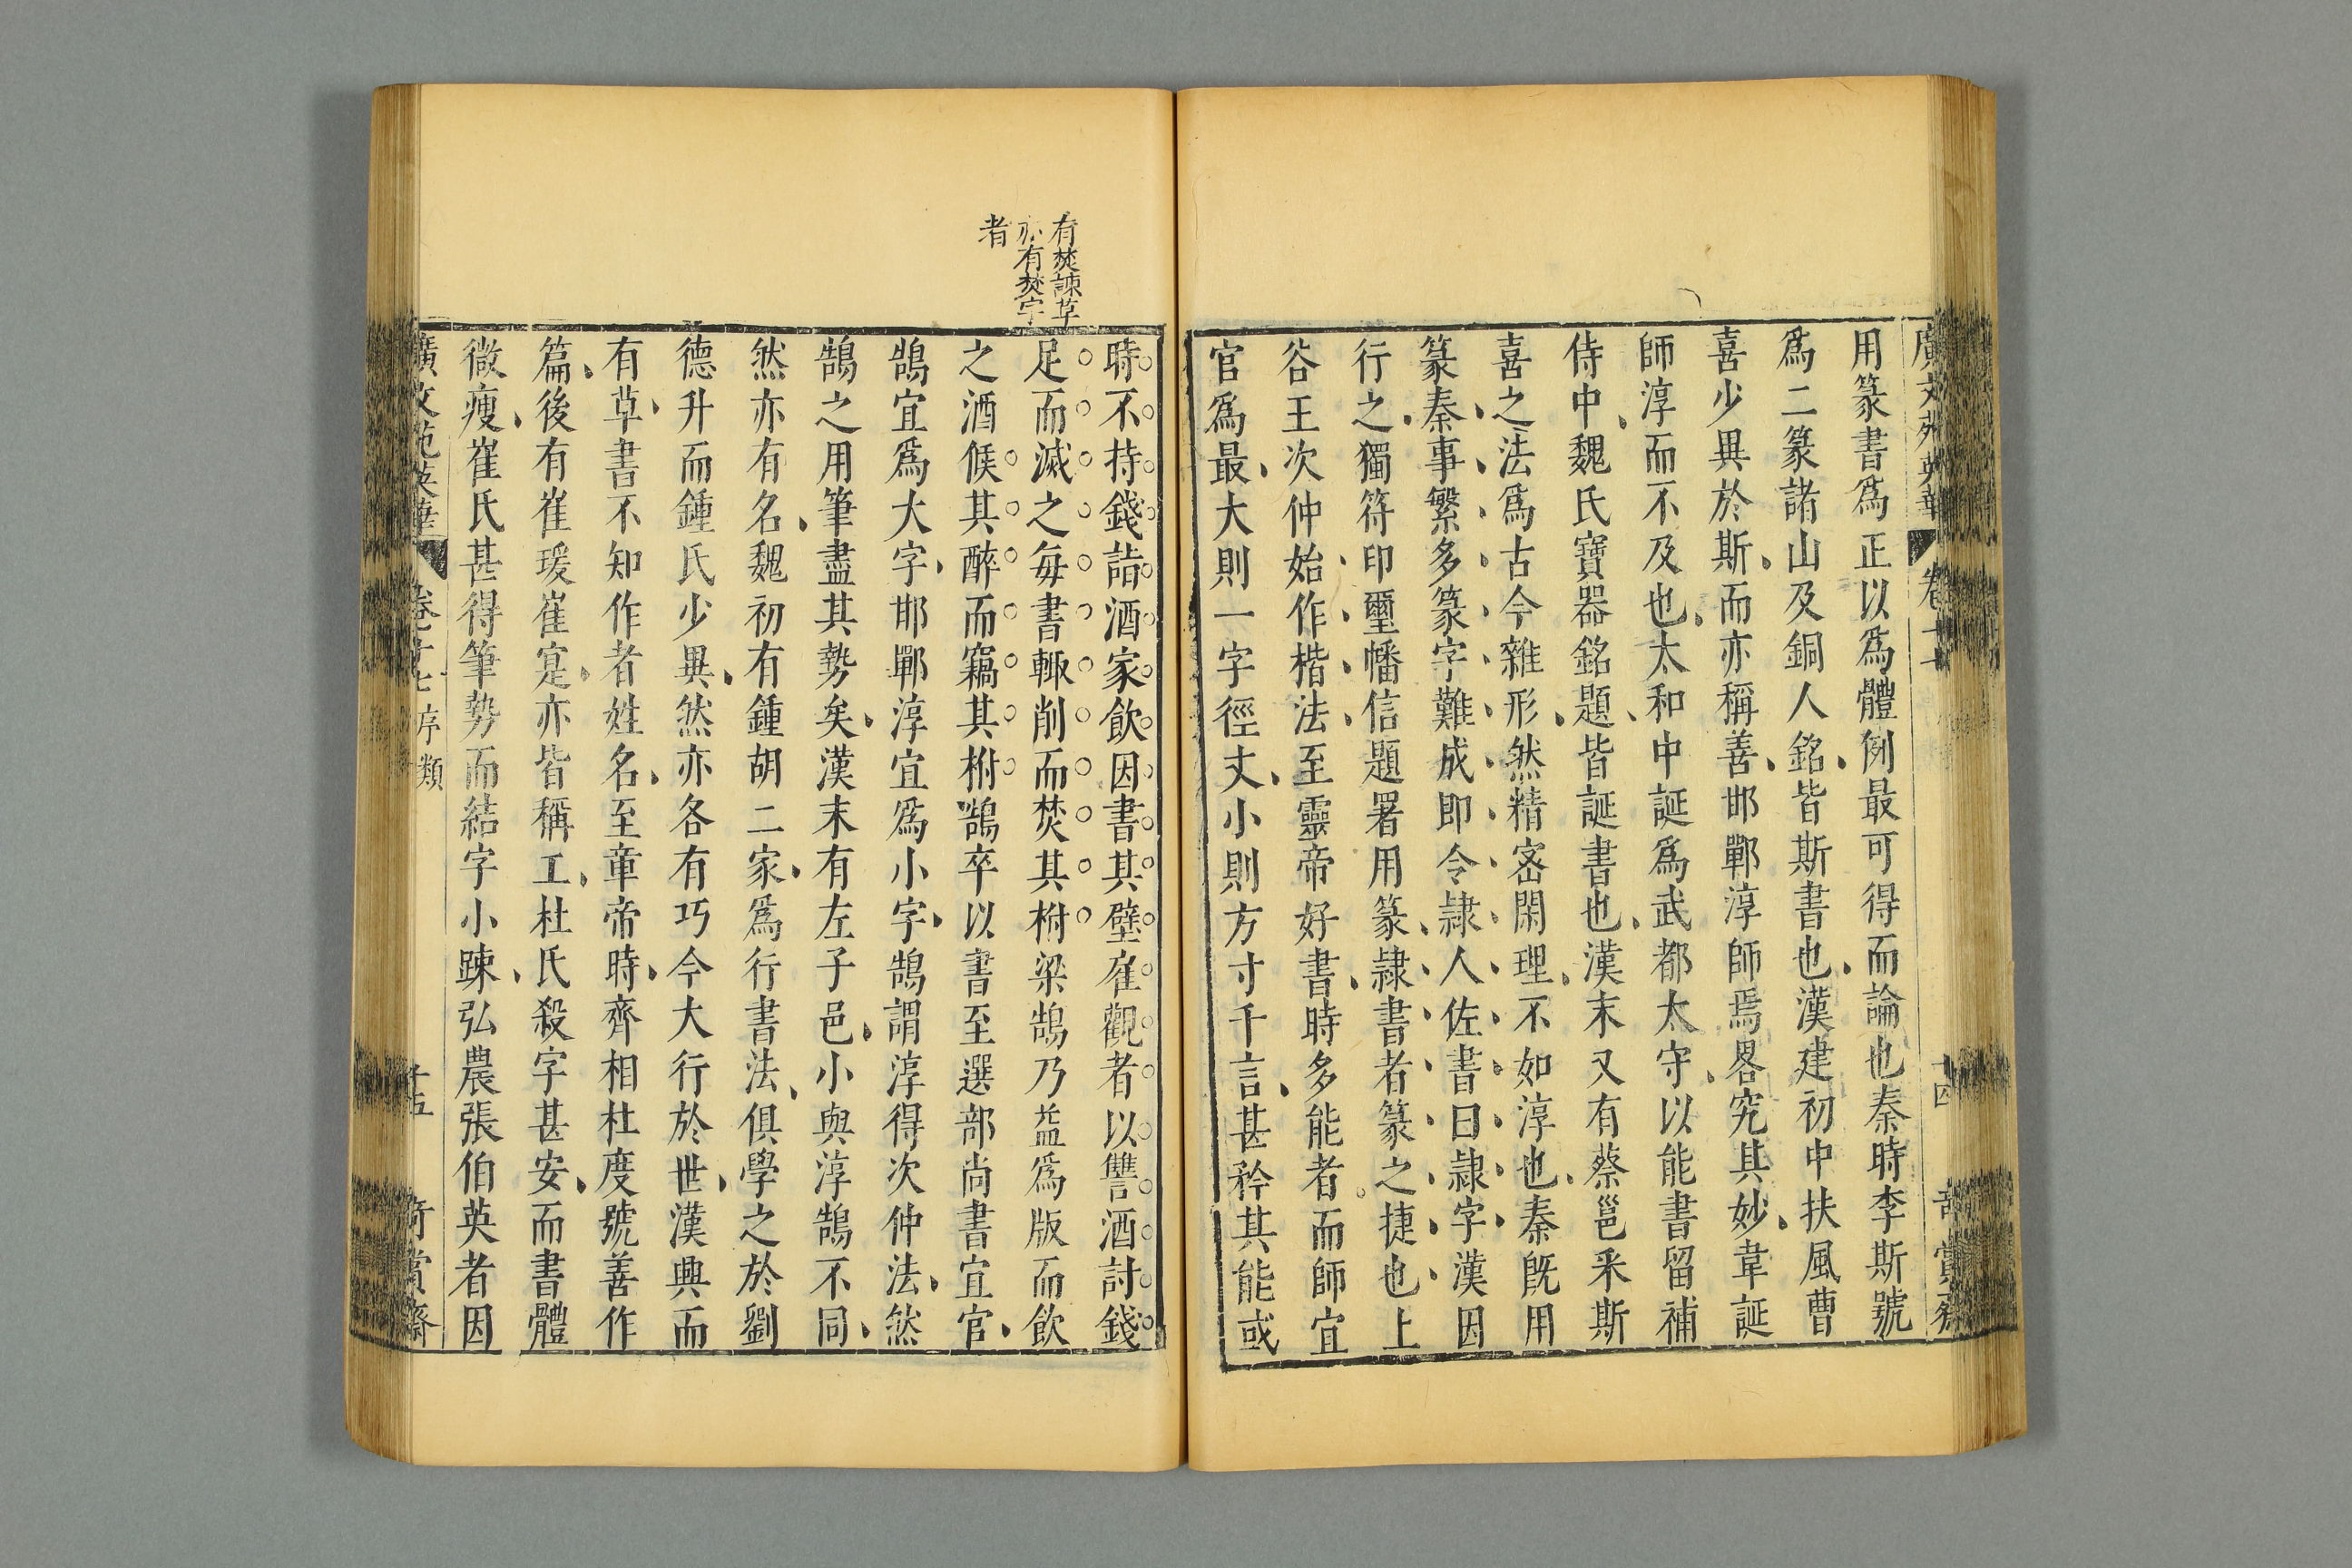 用篆書爲正以爲體例最可得而論也秦時李斯號
爲二篆諸山及銅人銘皆斯書也漢建初中扶風曹
喜少異於斯而亦稱善邯鄲淳師焉畧究其妙韋誕
師淳而不及也太和中誕爲武都太守以能書留補
侍中魏氏寶器銘題皆誕書也漢末又有蔡邕采斯
喜之法爲古今雜形然精宻閑理不如淳也秦旣用
篆秦事繁多篆字難成即令隷人佐書曰隷字漢因
行之獨符印璽幡信題署用篆隷書者篆之捷也上
谷王次仲始作楷法至靈帝好書時多能者而師宜
官爲最大則一字徑丈小則方寸千言甚矜其能或
有焚諫草
亦有焚字
者
時不持錢詣酒家飲因書其壁雇觀者以讐酒討錢
足而滅之每書輙削而焚其柎梁鵠乃益爲版而飲
之酒候其醉而竊其柎鵠卒以書至選部尚書宜官
鵠宜爲大字邯鄲淳宜爲小字鵠謂淳得次仲法然
鵠之用筆盡其勢矣漢末有左子邑小與淳鵠不同
然亦有名魏初有鍾胡二家爲行書法俱學之於劉
德升而鍾氏少異然亦各有巧今大行於世漢興而
有草書不知作者姓名至章帝時齊相杜度號善作
篇後有崔瑗崔寔亦皆稱工杜氏殺字甚安而書體
微瘦崔氏甚得筆勢而結字小踈弘農張伯英者因
廣文苑英華 卷十七 序類 十五 奇賞齋